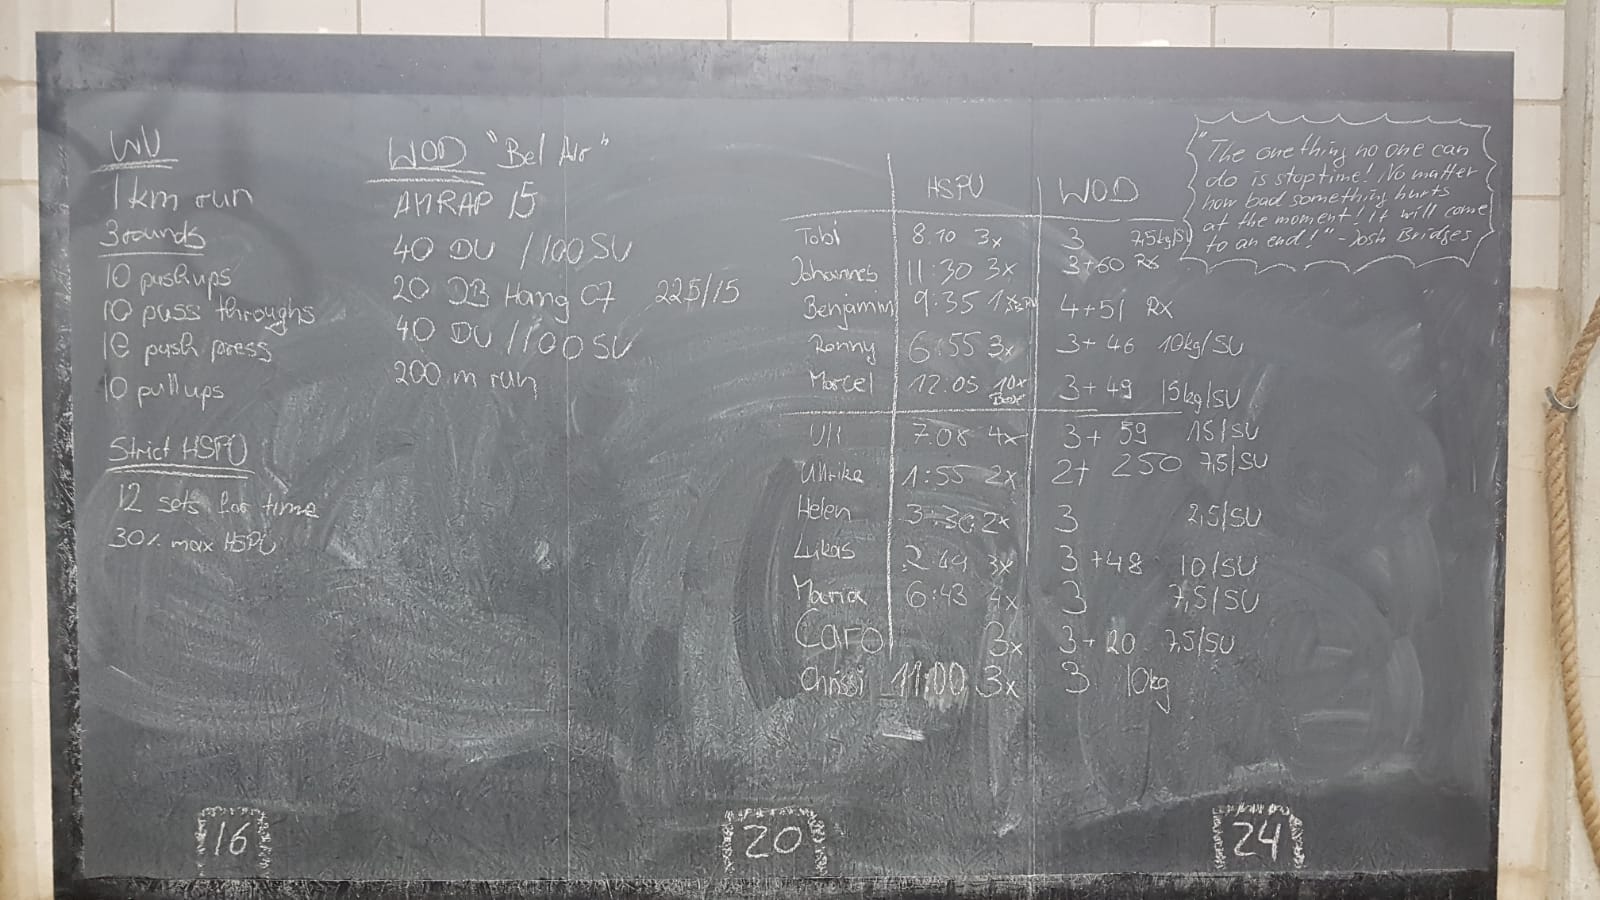 WU
1 km run
3 rounds
10 pushups
10 pass throughs
10 push press
10 pullups
Strict HSPU
12 sets for time
30% max HSPU
WOD "Bel Air"
AMRAP 15
40 DU / 100 SU
20 DB Hang C7 22,5/15
40 DU / 100 SU
200 m run
HSPU WOD
Tobi 8:10 3x 3 7,5kg/SU
Johannes 11:30 3x 3+60 Rx
Benjamin 9:35 1x 4+51 RX
Ronny 6:55 3x 3+46 10kg/SU
Marcel 12:05 10x 3+49 15kg/SU
Uli 7:08 4x 3+59 15/SU
Ulrike 1:55 2x 2+ 250 7,5/SU
Helen 3:30 2x 3 2,5/SU
Lukas 2:49 3x 3+48 10/SU
Maria 6:43 4x 3 7,5/SU
Caro 3x 3+20 7,5/SU
Chrissi 11:00 3x 3 10kg
"The one thing no one can
do is stop time! No matter
how bad something hurts
at the moment! It will come
to an end!" - Josh Bridges
16
20
24